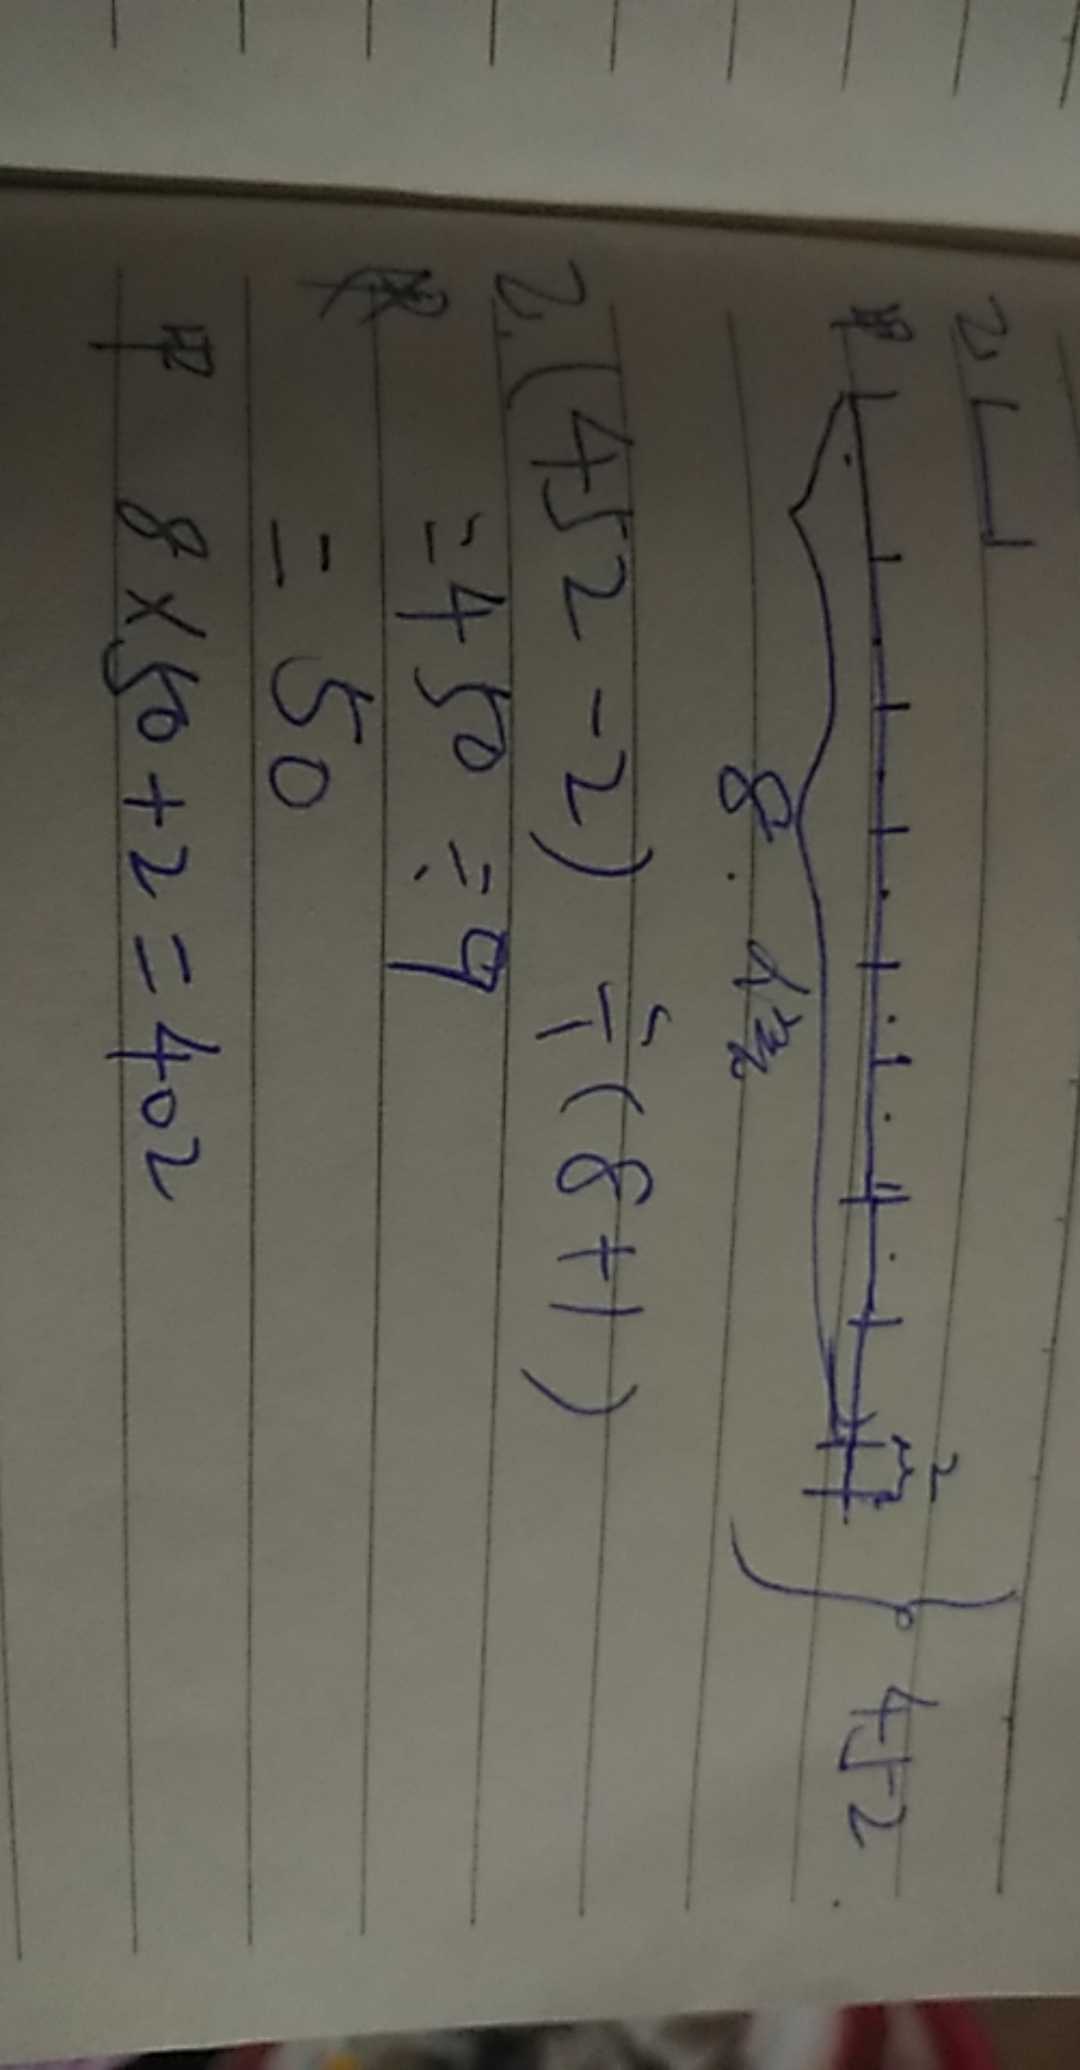 乙
甲
2
452
8倍
乙(452-2)÷(8+1)
=450÷9
=50
甲 8×50+2=402